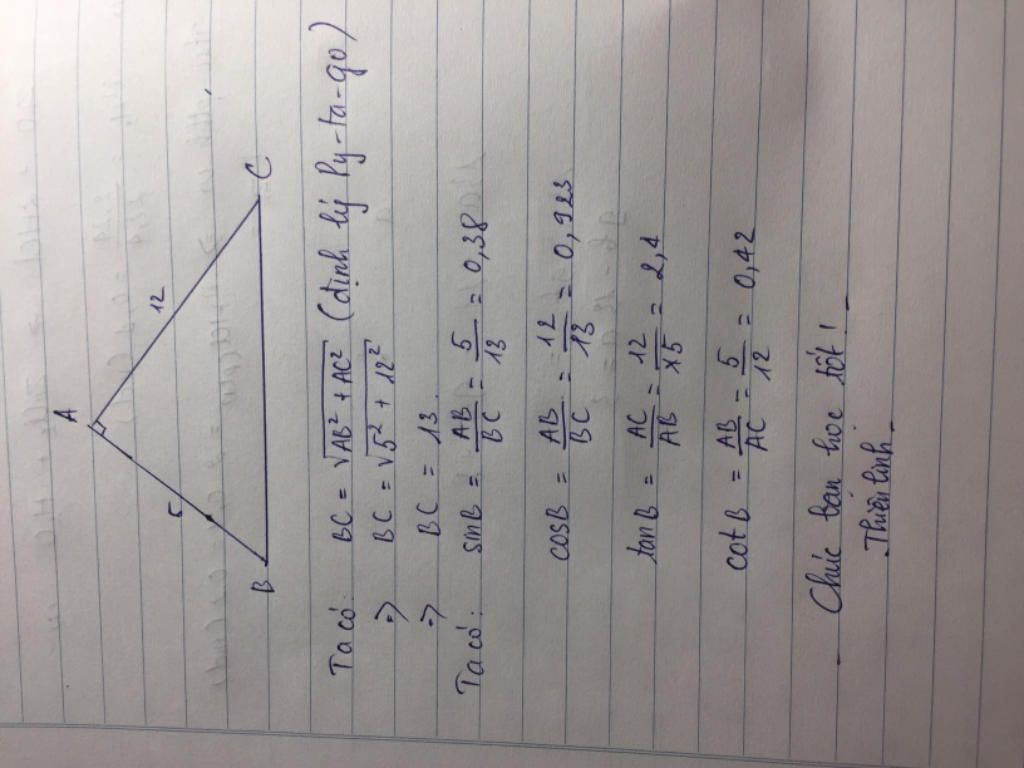 A
5
12
B
C
Ta có: BC = √AB² + AC² (định lý Py-ta-go)
=> BC = √5² + 12²
=> BC = 13.
Ta có: sinB = AB/BC = 5/13 = 0,38
cosB = AB/BC = 12/13 = 0,923
tanB = AC/AB = 12/x5 = 2,4
cotB = AB/AC = 5/12 = 0,42
- Chúc bạn học tốt! -
- Thiên Linh -